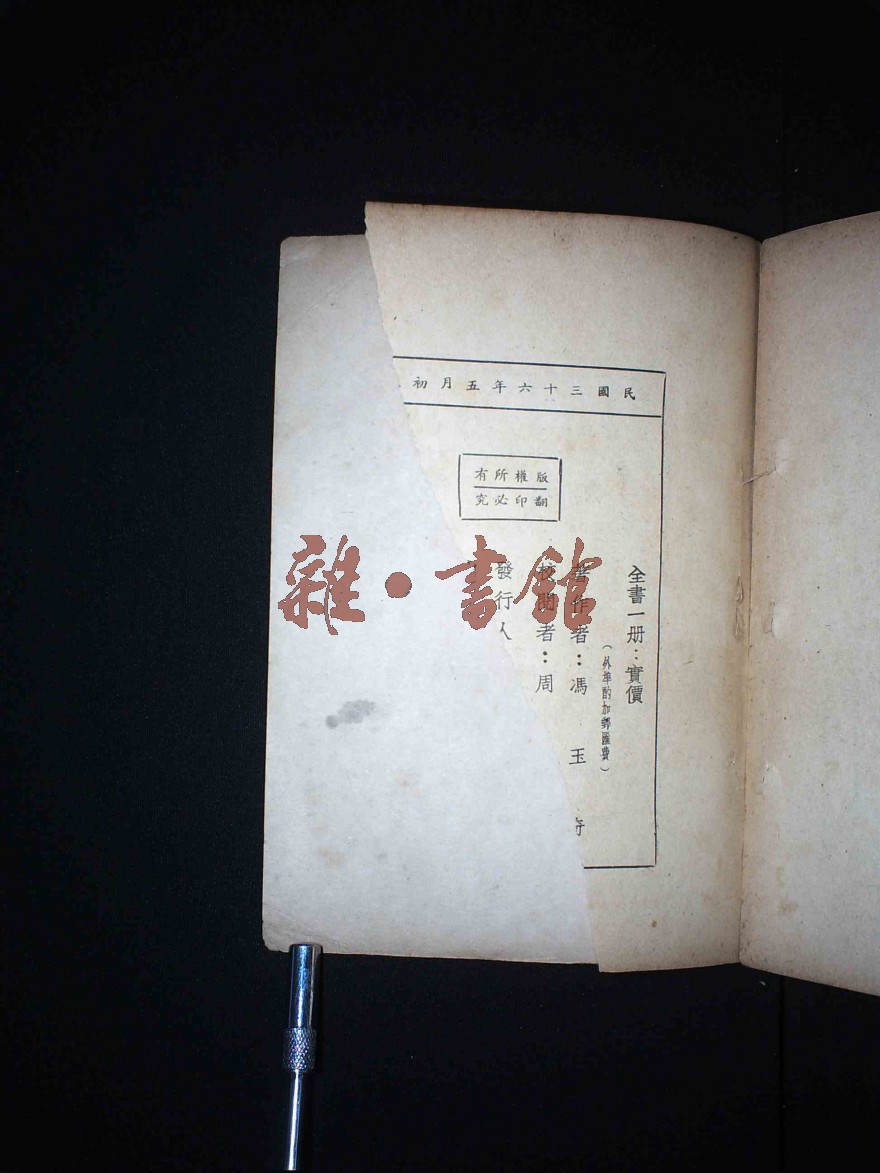 民國三十六年五月初
版權所有
翻印必究
全書一册：實價
（外埠酌加郵匯費）
著作者：馮玉奇
校閱者：周
發行人
雜・書館